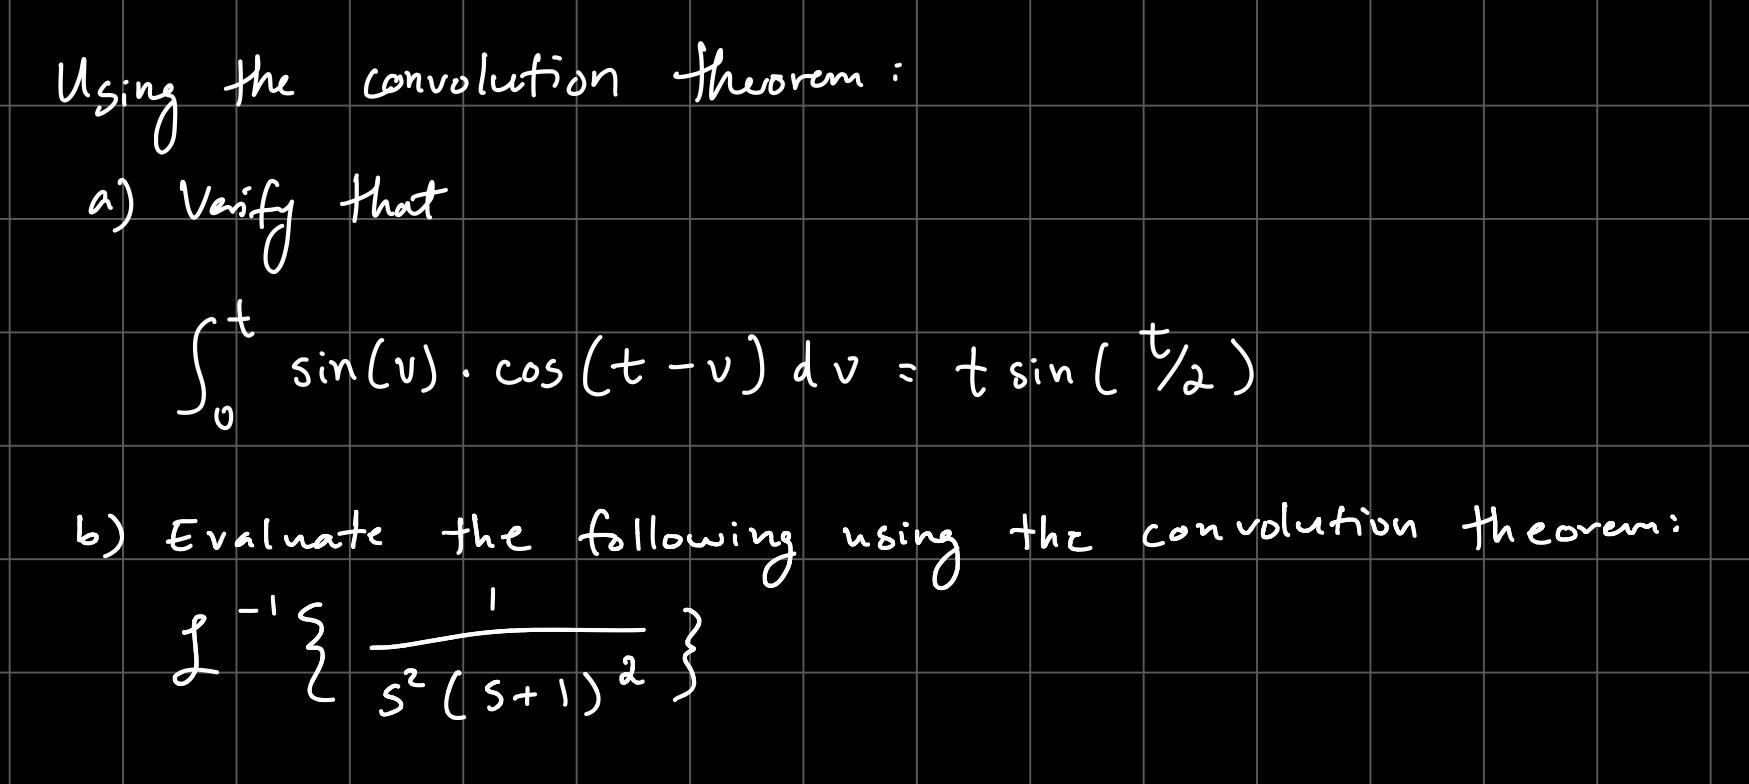 Using the convolution theorem:
a) Verify that
∫₀ᵗ sin(v) · cos(t − v) dv = t sin(t/2)
b) Evaluate the following using the convolution theorem:
ℒ⁻¹ { 1 / s²(s+1)² }